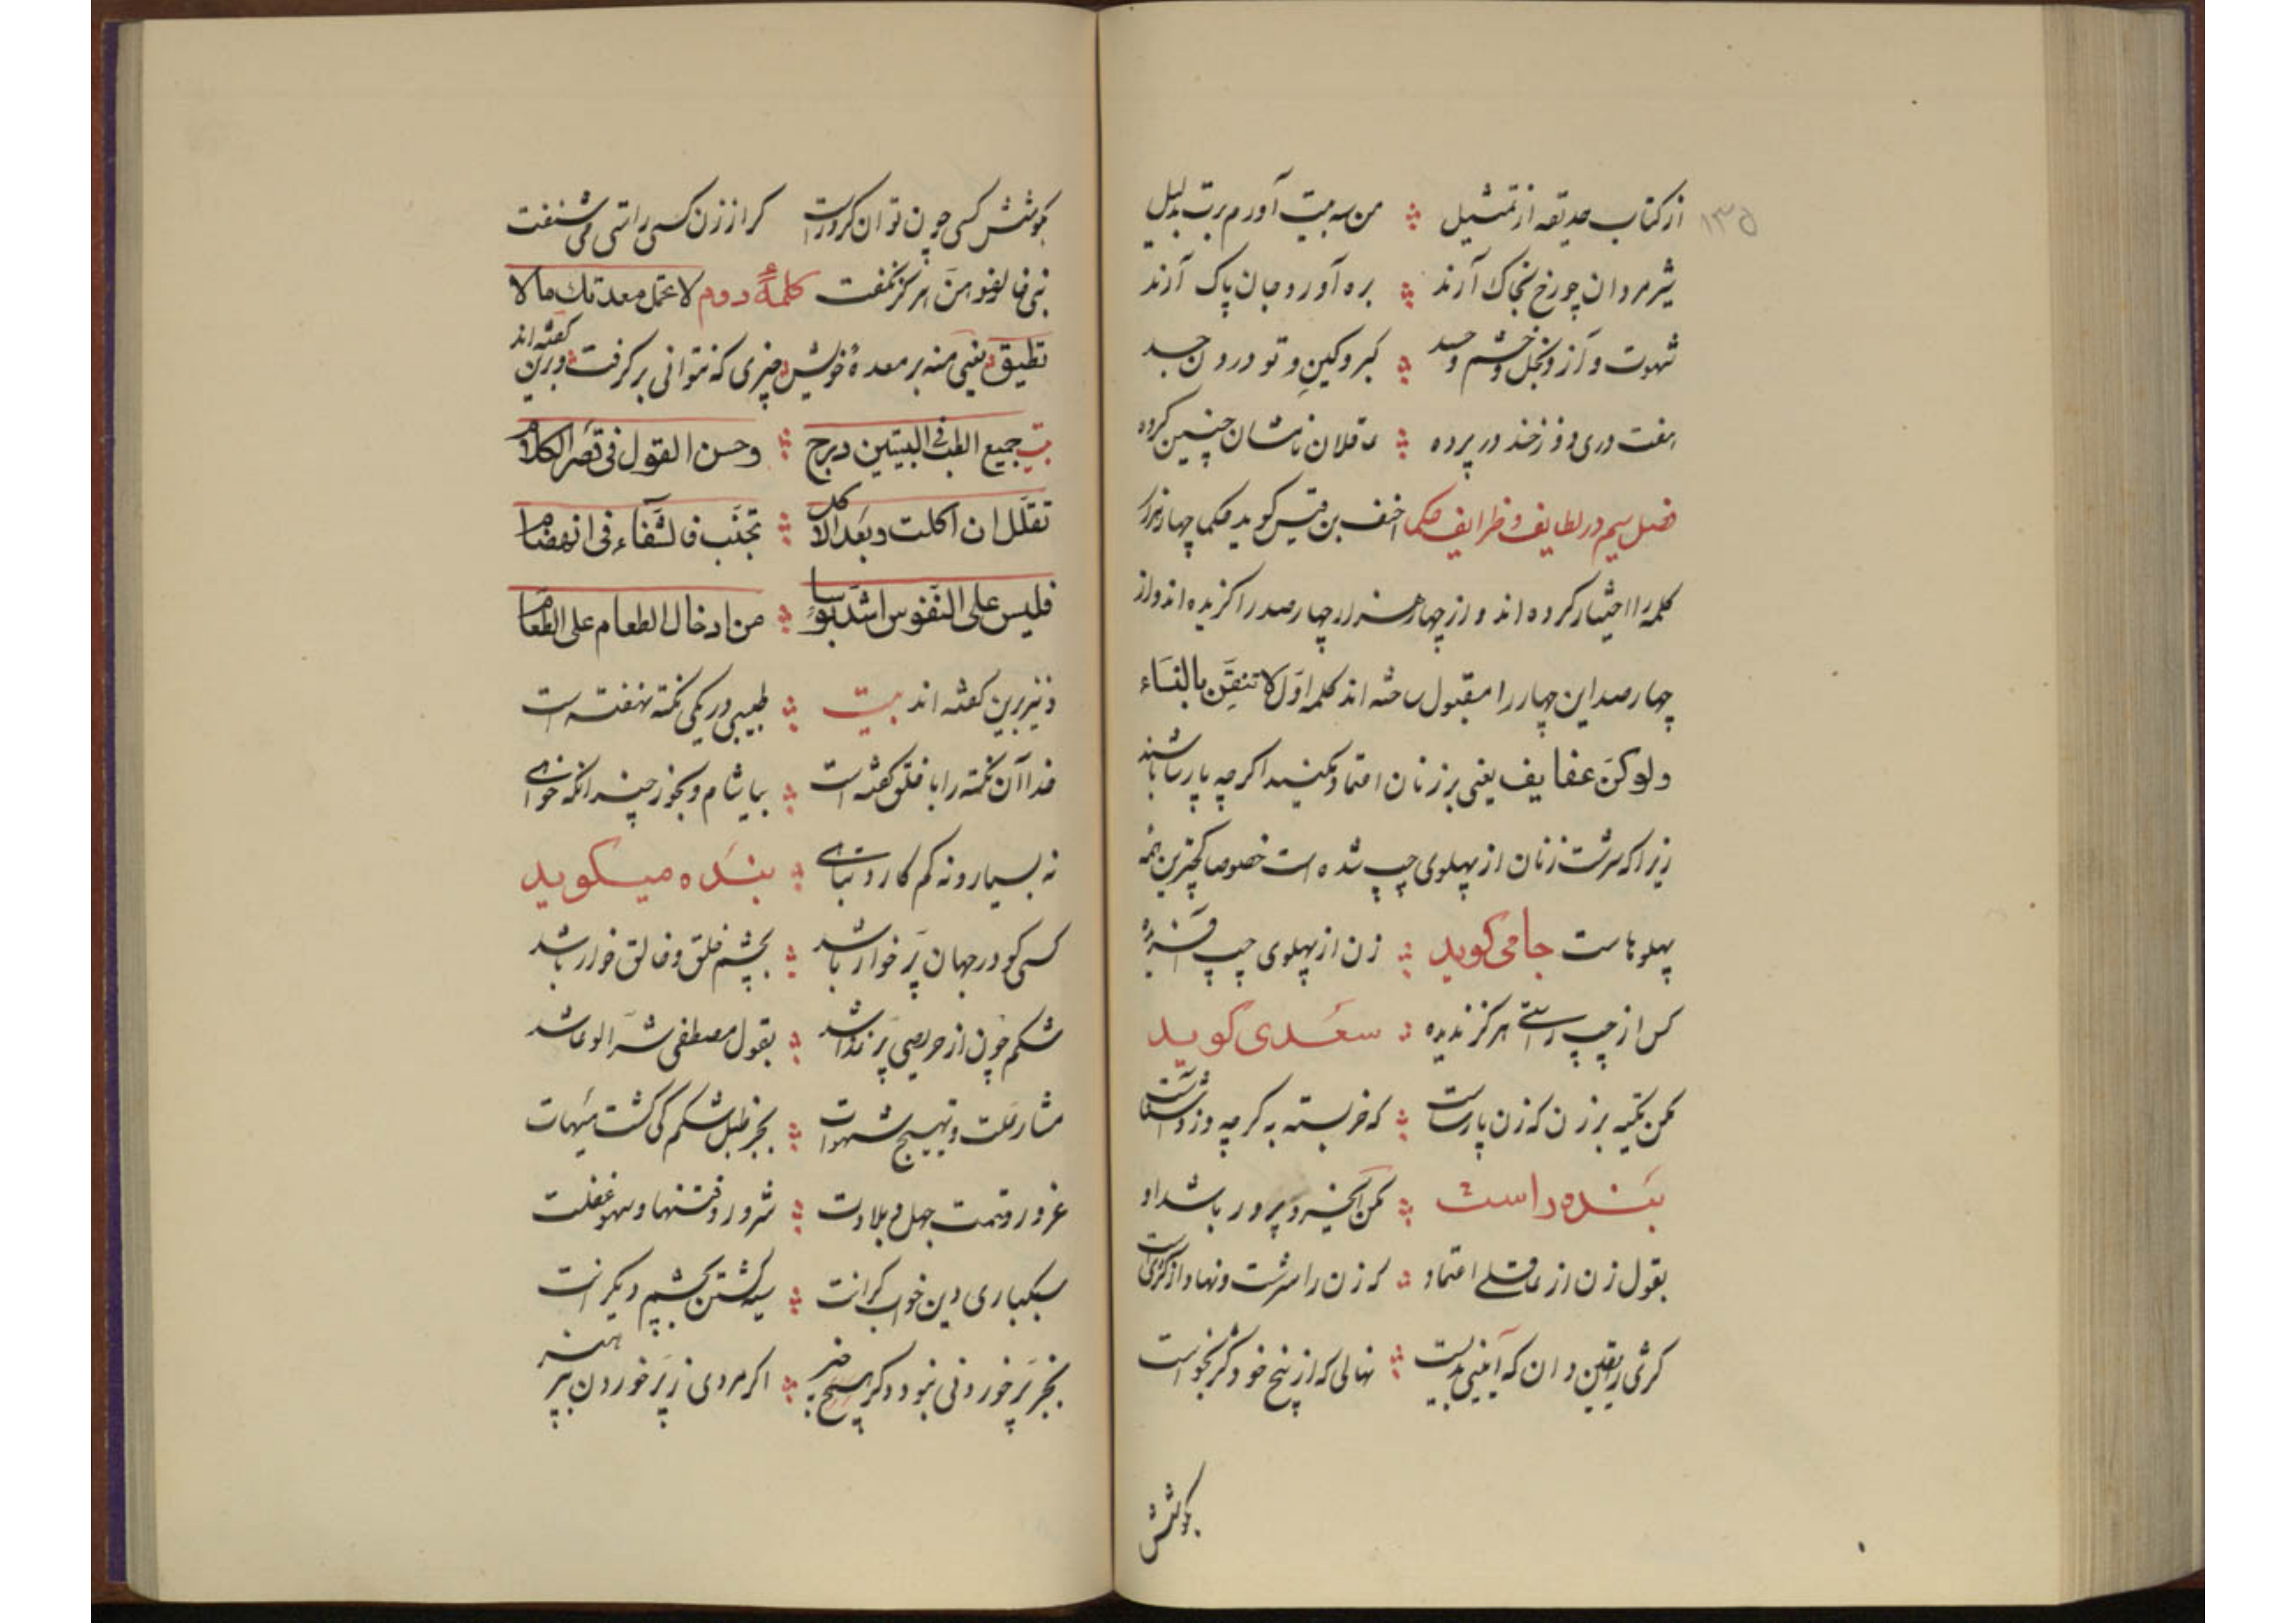 ۱۳۵
از کتاب حدیقه از تمثیل من سه بیت آورم برت بدلیل
شیر مردان چو رخ بخاک آرند بره آورد جان پاک آرند
شهوت و آز و بخل و خشم و حسد کبر و کین و تو درون جسد
هفت دری دوزخند در پرده عاقلان نامشان چنین کرده
فصل سیم در لطایف و ظرایف حکما احنف بن قیس کوید حکما چهار هزار
کلمه را اختیار کرده اند و از چهار هزار چهار صد را کزیده اند و از
چهار صد این چهار را مقبول ساخته اند کلمه اول لا تثقن بالنساء
ولو کن عفایف یعنی بر زنان اعتماد مکنید اکر چه پارسا باشند
زیرا که سرشت زنان از پهلوی چپ شده است خصوصا کجترین همه
پهلوهاست جامی کوید زن از پهلوی چپ آفریده
کس از چپ راستی هرکز ندیده سعدی کوید
مکن تکیه بر زن که زن پارساست که خر بسته به کرچه دزد آشناست
بنده راست مکن کر خرد پرور باشد او
بقول زن از عاقلی اعتماد که زن را سرشت و نهاد از کژی است
کژی را یقین دان که آیینی بدیست نهالی که از بیخ خود کژ بخواست
بکوشش
بکوشش کسی چون توان کرد راست کرا از زن کسی راستی می شنفت
نبی خالفوهن هرکز نکفت کلمهٔ دوم لا تحمل معدتك ما لا
تطیق یعنی منه بر معدهٔ خویش چیزی که نتوانی بر کرفت و برین کفته اند
بیت جمیع الطب فی البیتین درج وحسن القول فی قصر الکلام
تقلل ان اکلت وبعد الاکل تجنب فالشفاء فی انهضام
فلیس علی النفوس اشد بوسا من ادخال الطعام علی الطعام
و نیز برین کفته اند بیت طبیبی در یکی نکته نهفته است
خدا آن نکته را با خلق کفته است بیاشام و بخور چندانکه خواهی
نه بسیار و نه کم کارد تباهی بنده میکوید
کسی کو در جهان پر خوار باشد بچشم خلق و خالق خوار باشد
شکم چون از حریصی پر نداشد بقول مصطفی شر الوعا شد
مثار علت و تهییج شهوات بجز طبل شکم کی کشت هیهات
غرور و تهمت جهل و بلادت شرور و فتنها و سهو غفلت
سبکباری دین خواب کرانست سیه کشتن بچشم دیکر انست
بجز پر خوردنی نبود دکر هیچ خبر اکر مردی ز پر خوردن بپر هیز